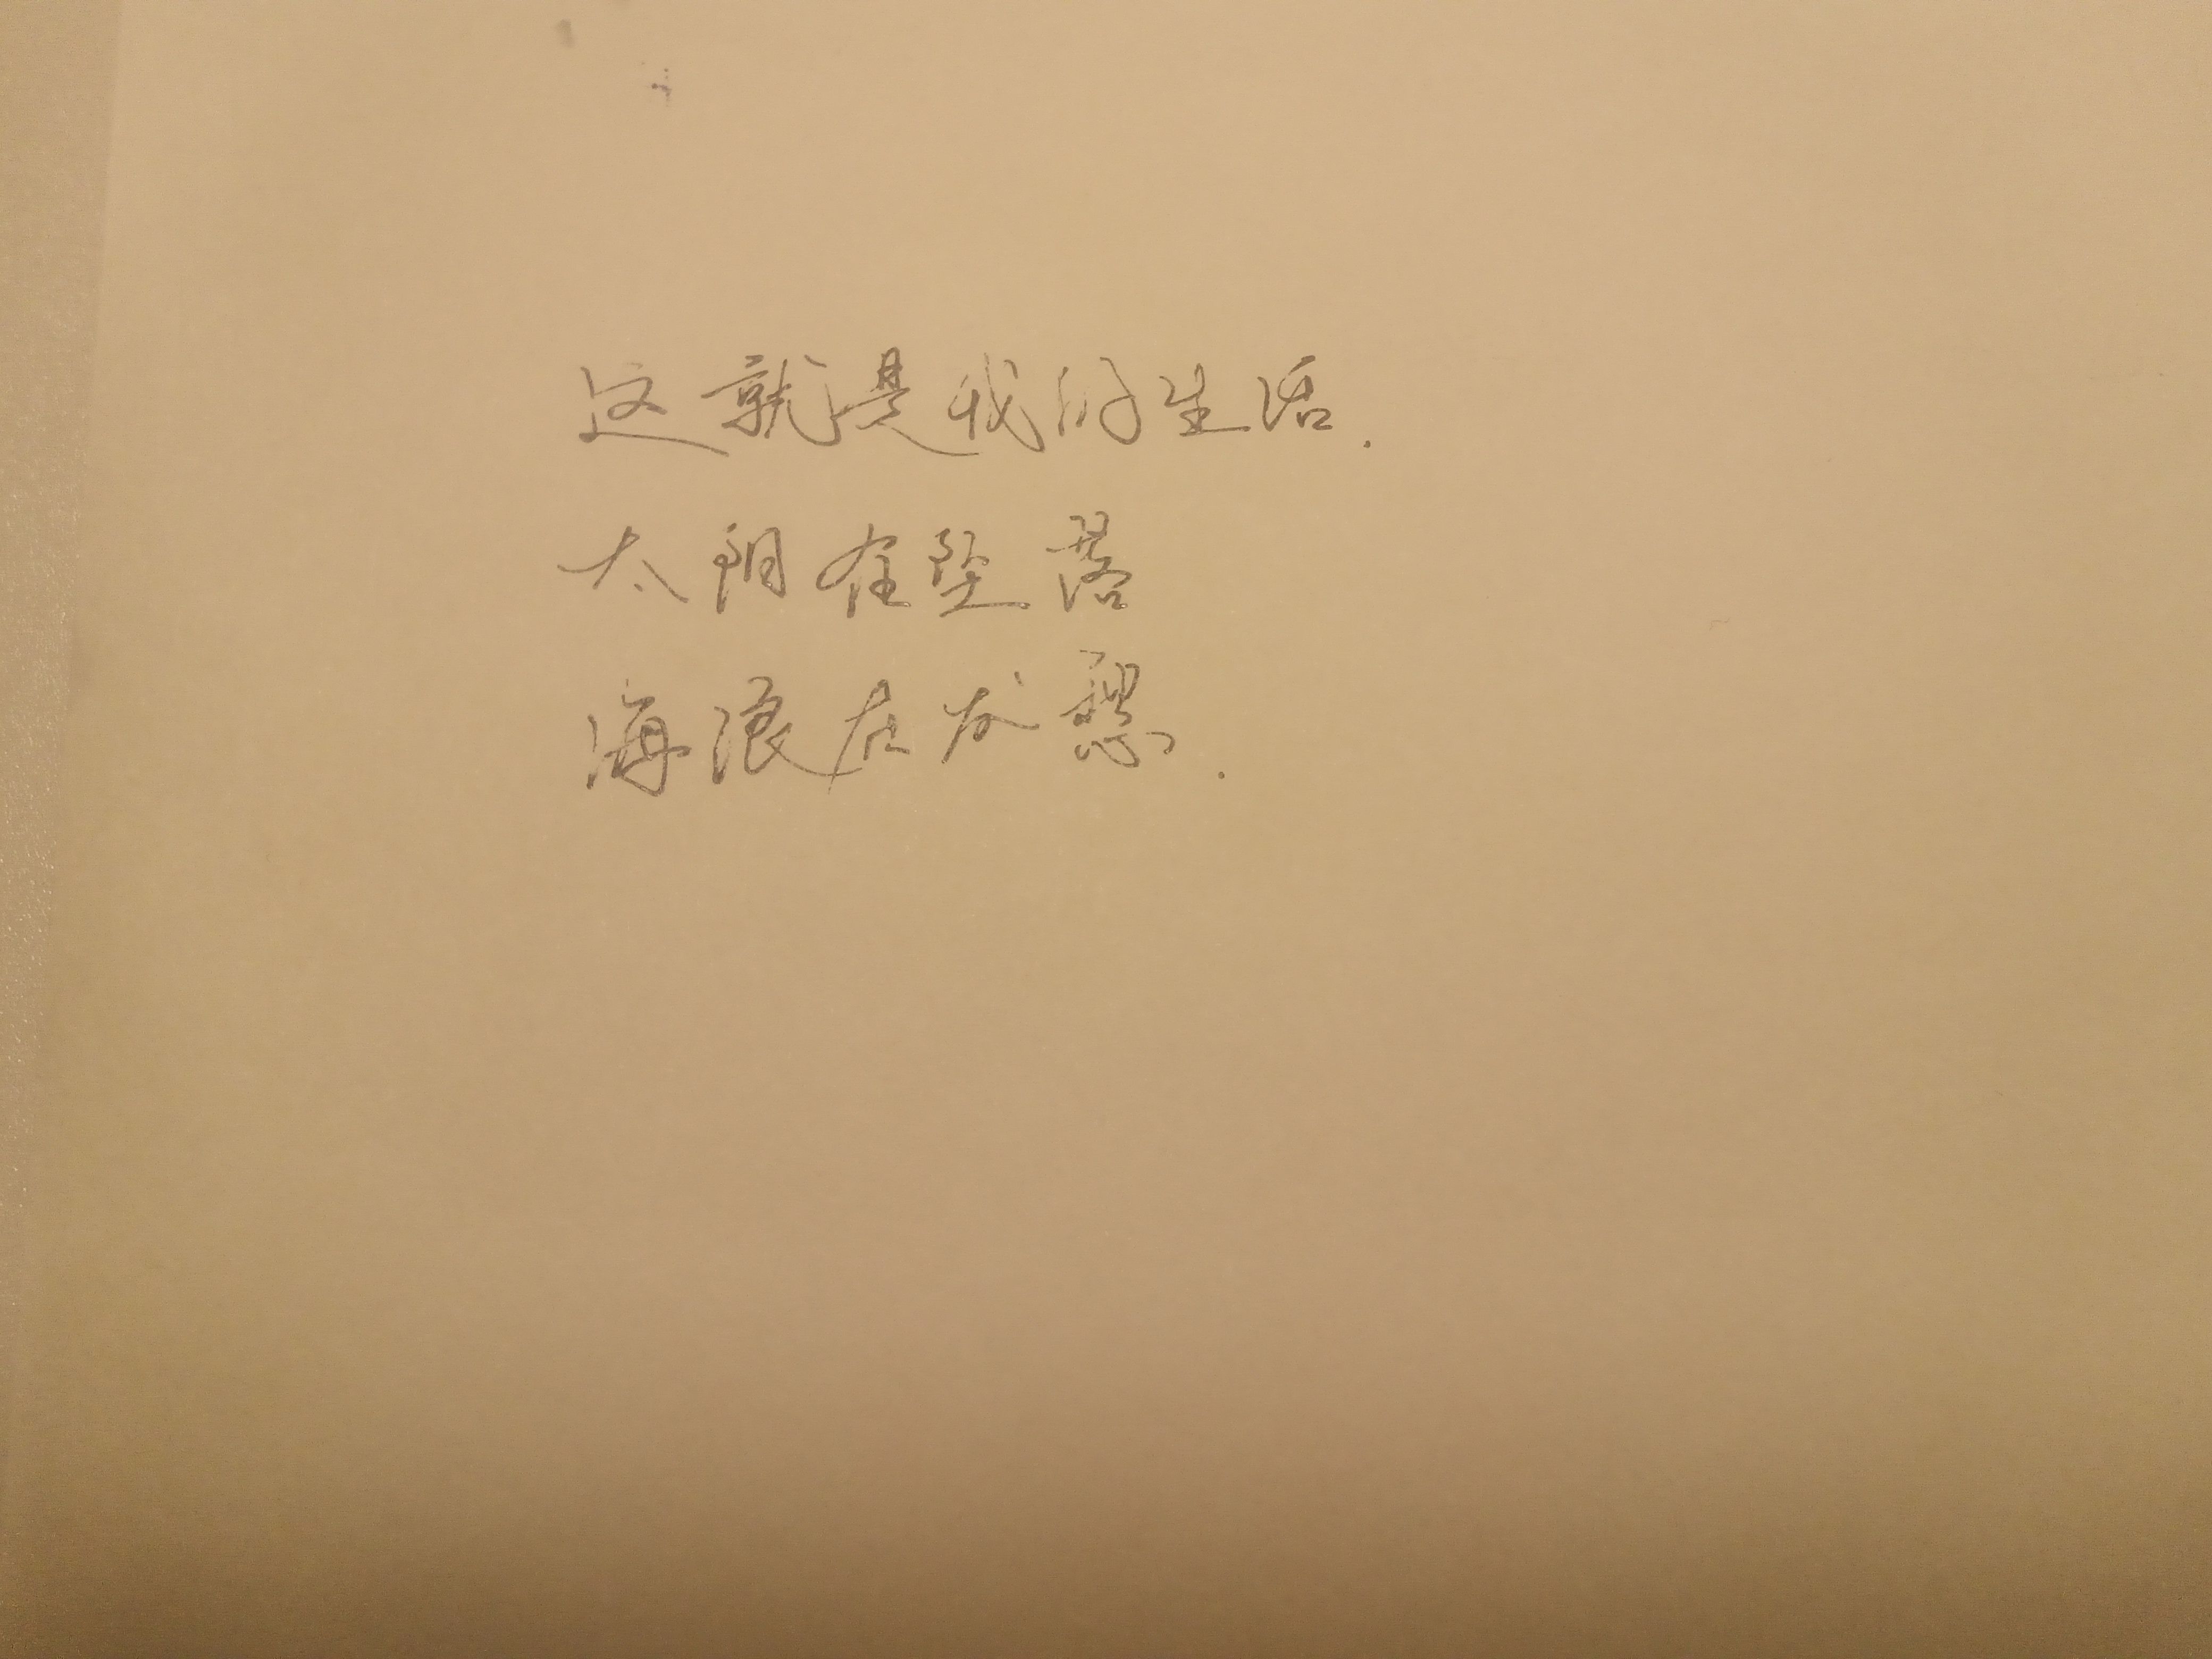 这就是我的生活.
太阳在坠落
海浪在发愁.